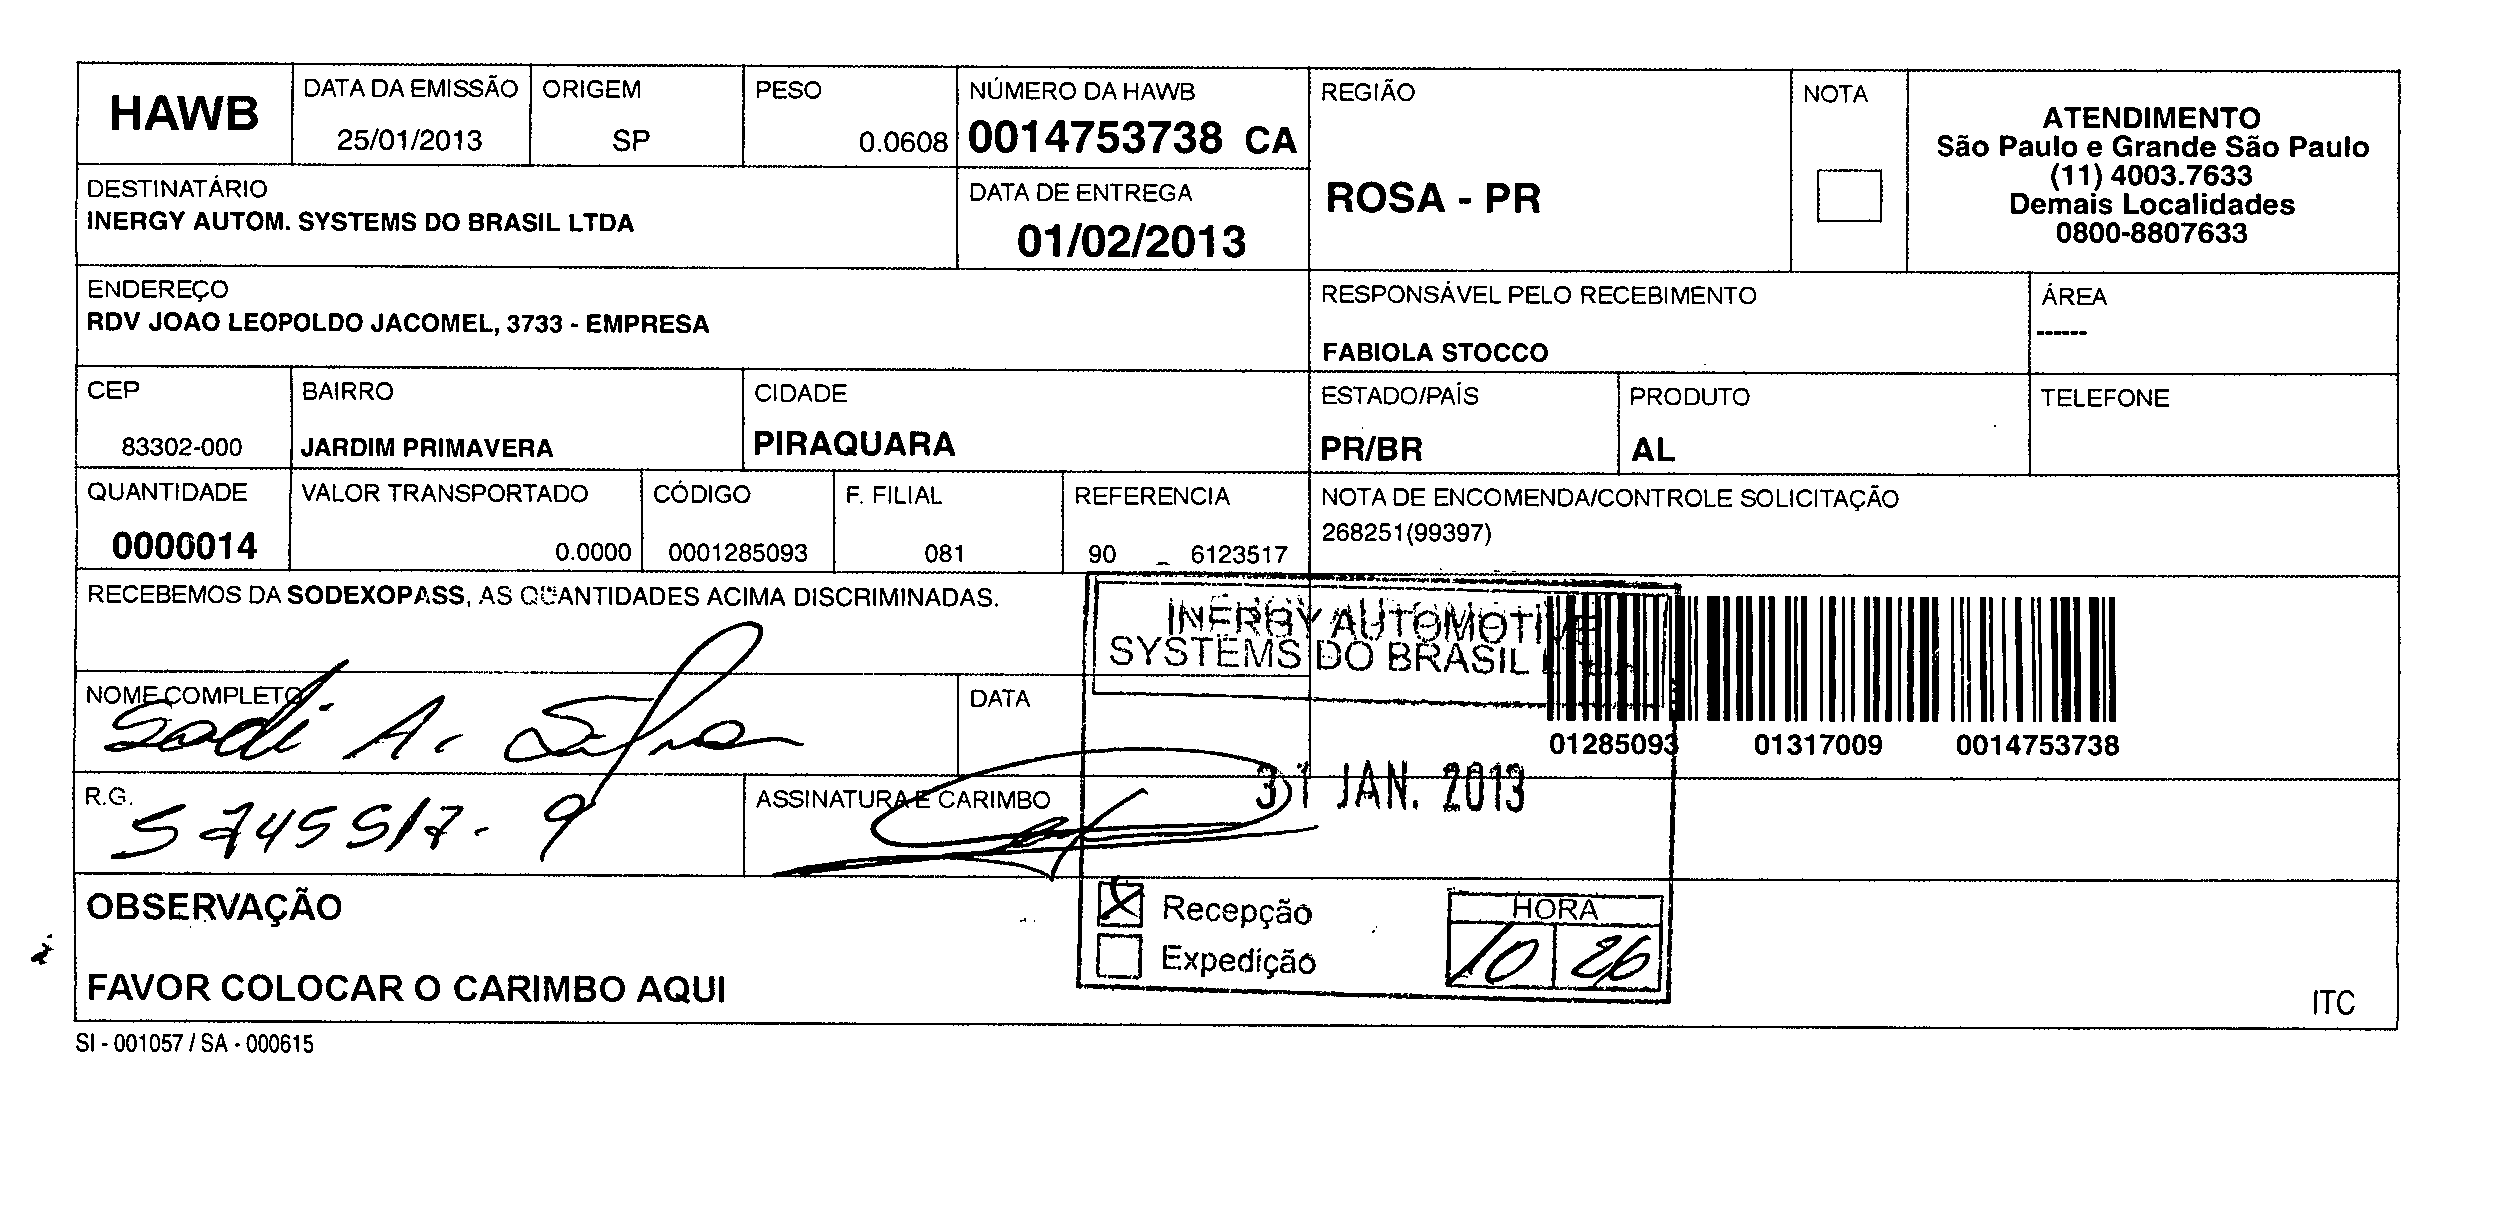 HAWB
DATA DA EMISSÃO
25/01/2013
ORIGEM
SP
PESO
0.0608
NÚMERO DA HAWB
0014753738 CA
REGIÃO
ROSA - PR
NOTA
ATENDIMENTO
São Paulo e Grande São Paulo
(11) 4003.7633
Demais Localidades
0800-8807633
DESTINATÁRIO
INERGY AUTOM. SYSTEMS DO BRASIL LTDA
DATA DE ENTREGA
01/02/2013
ENDEREÇO
RDV JOAO LEOPOLDO JACOMEL, 3733 - EMPRESA
RESPONSÁVEL PELO RECEBIMENTO
FABIOLA STOCCO
ÁREA
------
CEP
83302-000
BAIRRO
JARDIM PRIMAVERA
CIDADE
PIRAQUARA
ESTADO/PAÍS
PR/BR
PRODUTO
AL
TELEFONE
QUANTIDADE
0000014
VALOR TRANSPORTADO
0.0000
CÓDIGO
0001285093
F. FILIAL
081
REFERENCIA
90 _ 6123517
NOTA DE ENCOMENDA/CONTROLE SOLICITAÇÃO
268251(99397)
RECEBEMOS DA SODEXOPASS, AS QUANTIDADES ACIMA DISCRIMINADAS.
INERGY AUTOMOTIVE
SYSTEMS DO BRASIL
01285093 01317009 0014753738
NOME COMPLETO
Sadi A. Silva
DATA
31 JAN. 2013
R.G.
5745517-9
ASSINATURA E CARIMBO
OBSERVAÇÃO
FAVOR COLOCAR O CARIMBO AQUI
Recepção
Expedição
HORA
10 26
ITC
SI - 001057 / SA - 000615